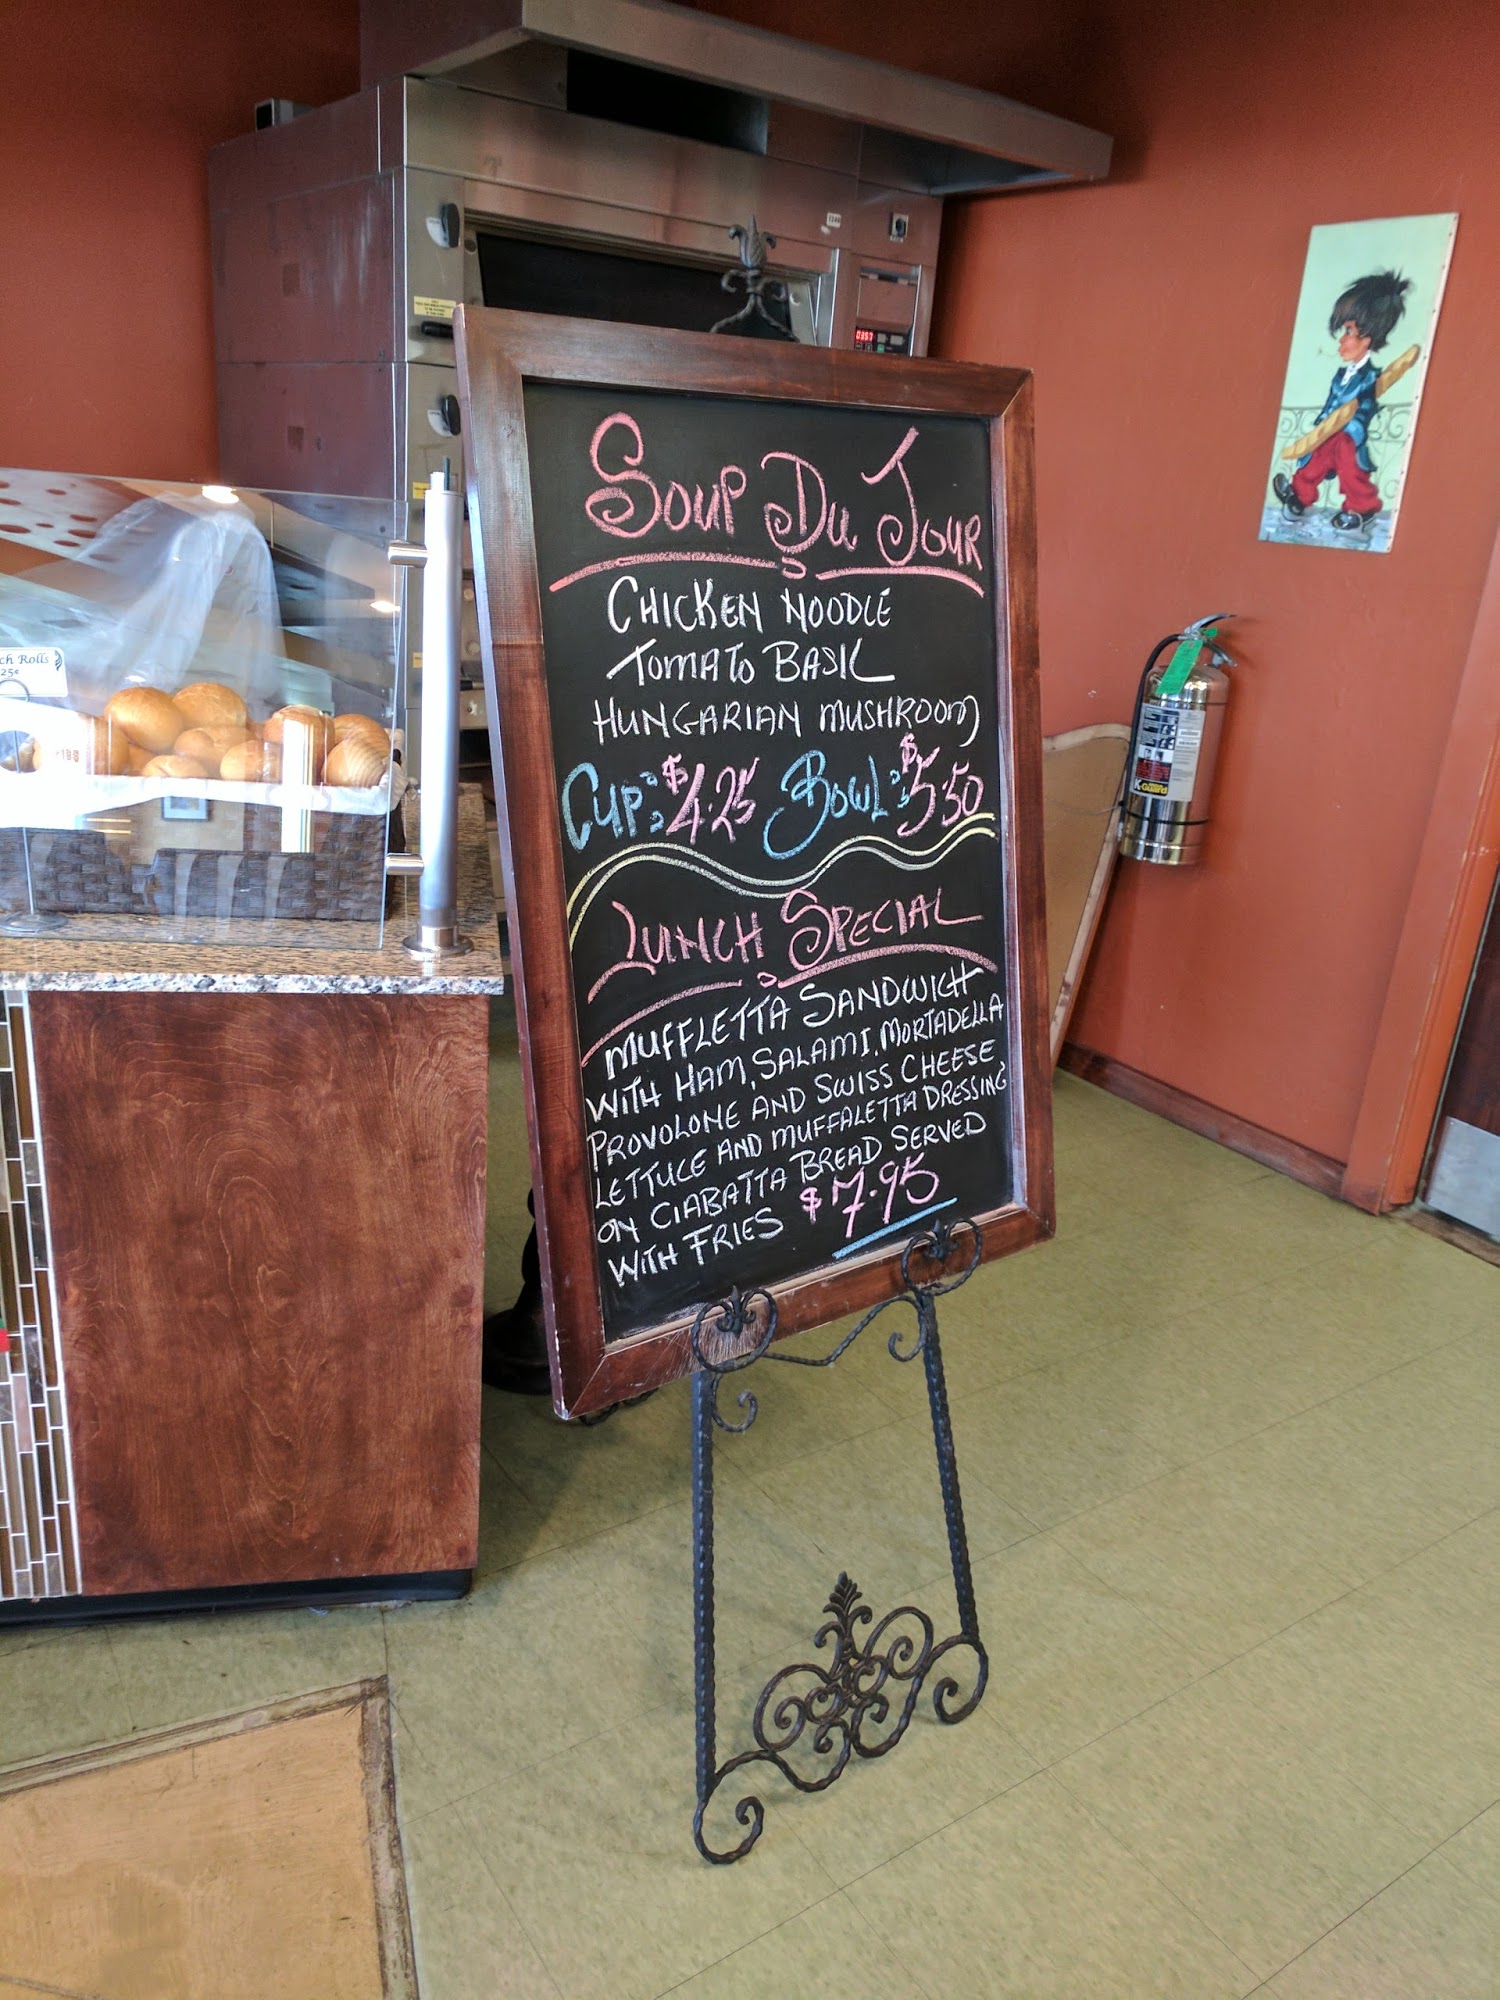 Soup Du Jour
Chicken Noodle
Tomato Basil
Hungarian Mushroom
Cup: $4.25 Bowl: $5.50
Lunch Special
Muffletta Sandwich
with Ham, Salami, Mortadella
Provolone and Swiss Cheese
Lettuce and Muffaletta Dressing
on Ciabatta Bread Served
with Fries $7.95
ch Rolls
25¢
K-Guard